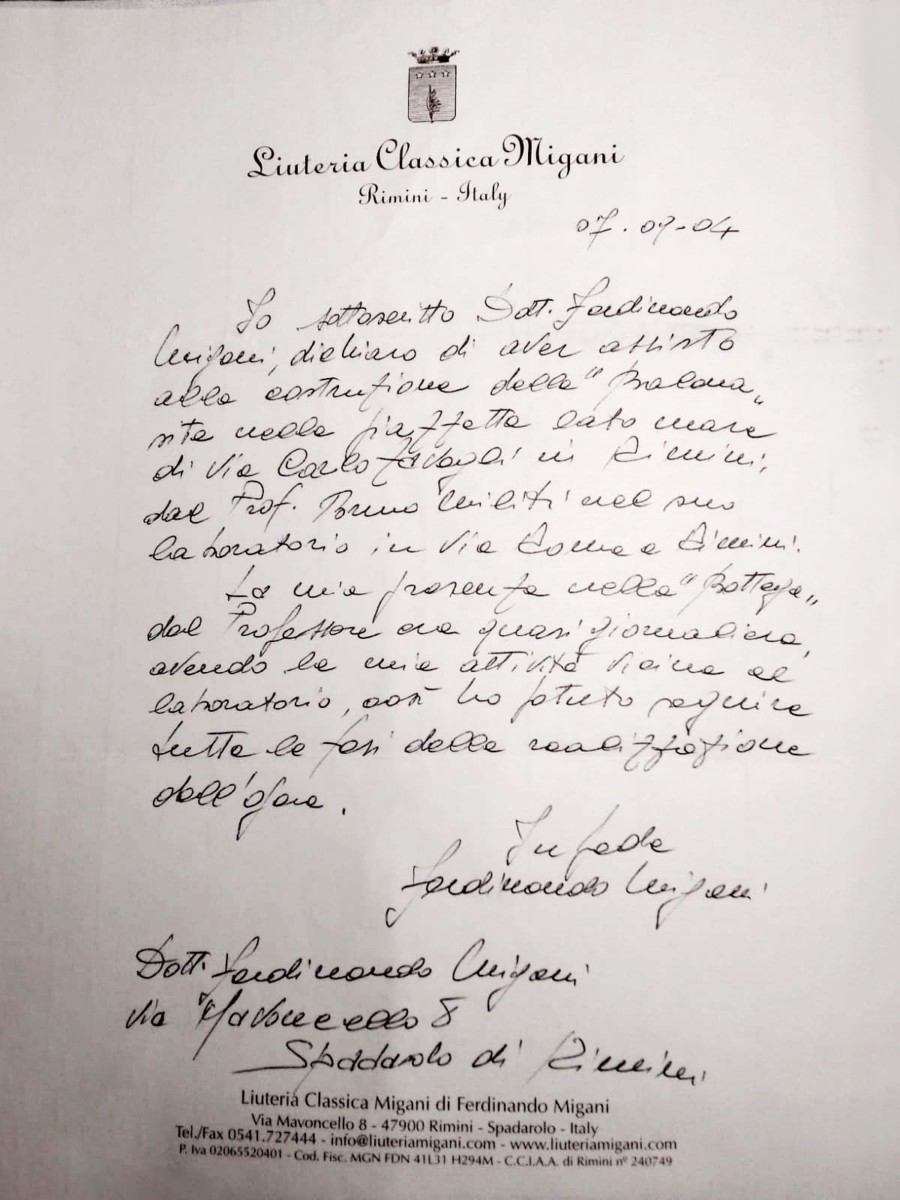 Liuteria Classica Migani
Rimini - Italy
07-07-04
Io sottoscritto Dott. Ferdinando
Migani, dichiaro di aver assisto
alla costruzione della "Balena"
sita nella piazzetta lato mare
di via Carlo Zavagli in Rimini,
dal Prof. Bruno Militi nel suo
laboratorio in via Roma a Rimini.
La mia presenza nella "Bottega"
del Professore era quasi giornaliera,
avendo la mia attività vicina al
laboratorio, così ho potuto seguire
tutte le fasi della realizzazione
dell'opera.
In fede
Ferdinando Migani
Dott. Ferdinando Migani
via Mavoncello 8
Spadarolo di Rimini
Liuteria Classica Migani di Ferdinando Migani
Via Mavoncello 8 - 47900 Rimini - Spadarolo - Italy
Tel./Fax 0541.727444 - info@liuteriamigani.com - www.liuteriamigani.com
P. Iva 02065520401 - Cod. Fisc. MGN FDN 41L31 H294M - C.C.I.A.A. di Rimini n° 240749